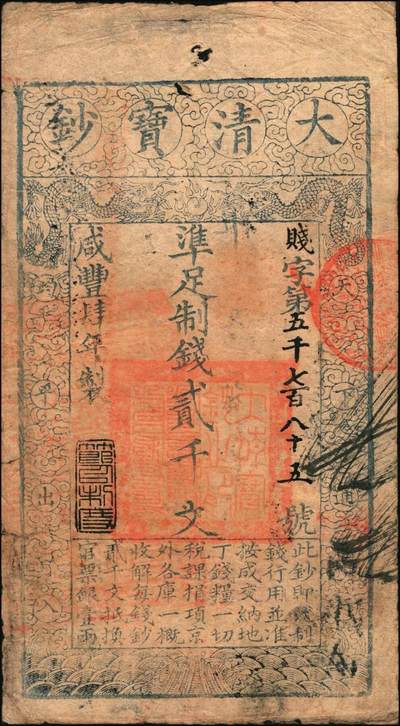 大清寶鈔
賤字第五千七百八十五號
準足制錢貳千文
咸豐肆年製
天下通
平出
此鈔即代制
錢行用並准
按成交納地
丁錢糧一切
稅課捐項京
外各庫一概
收解每錢鈔
貳千文抵換
官票銀壹兩